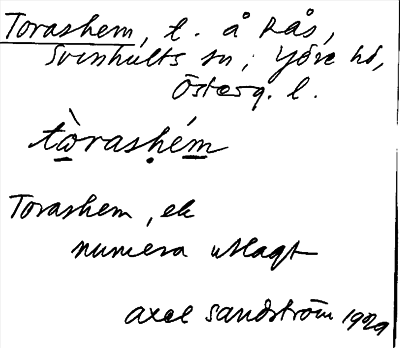 Torashem, t. å Rås,
Svinhults sn, Ydre hd,
Österg. l.
tòrashém
Torashem, ek
numera utlagt
Axel Sandström 1929